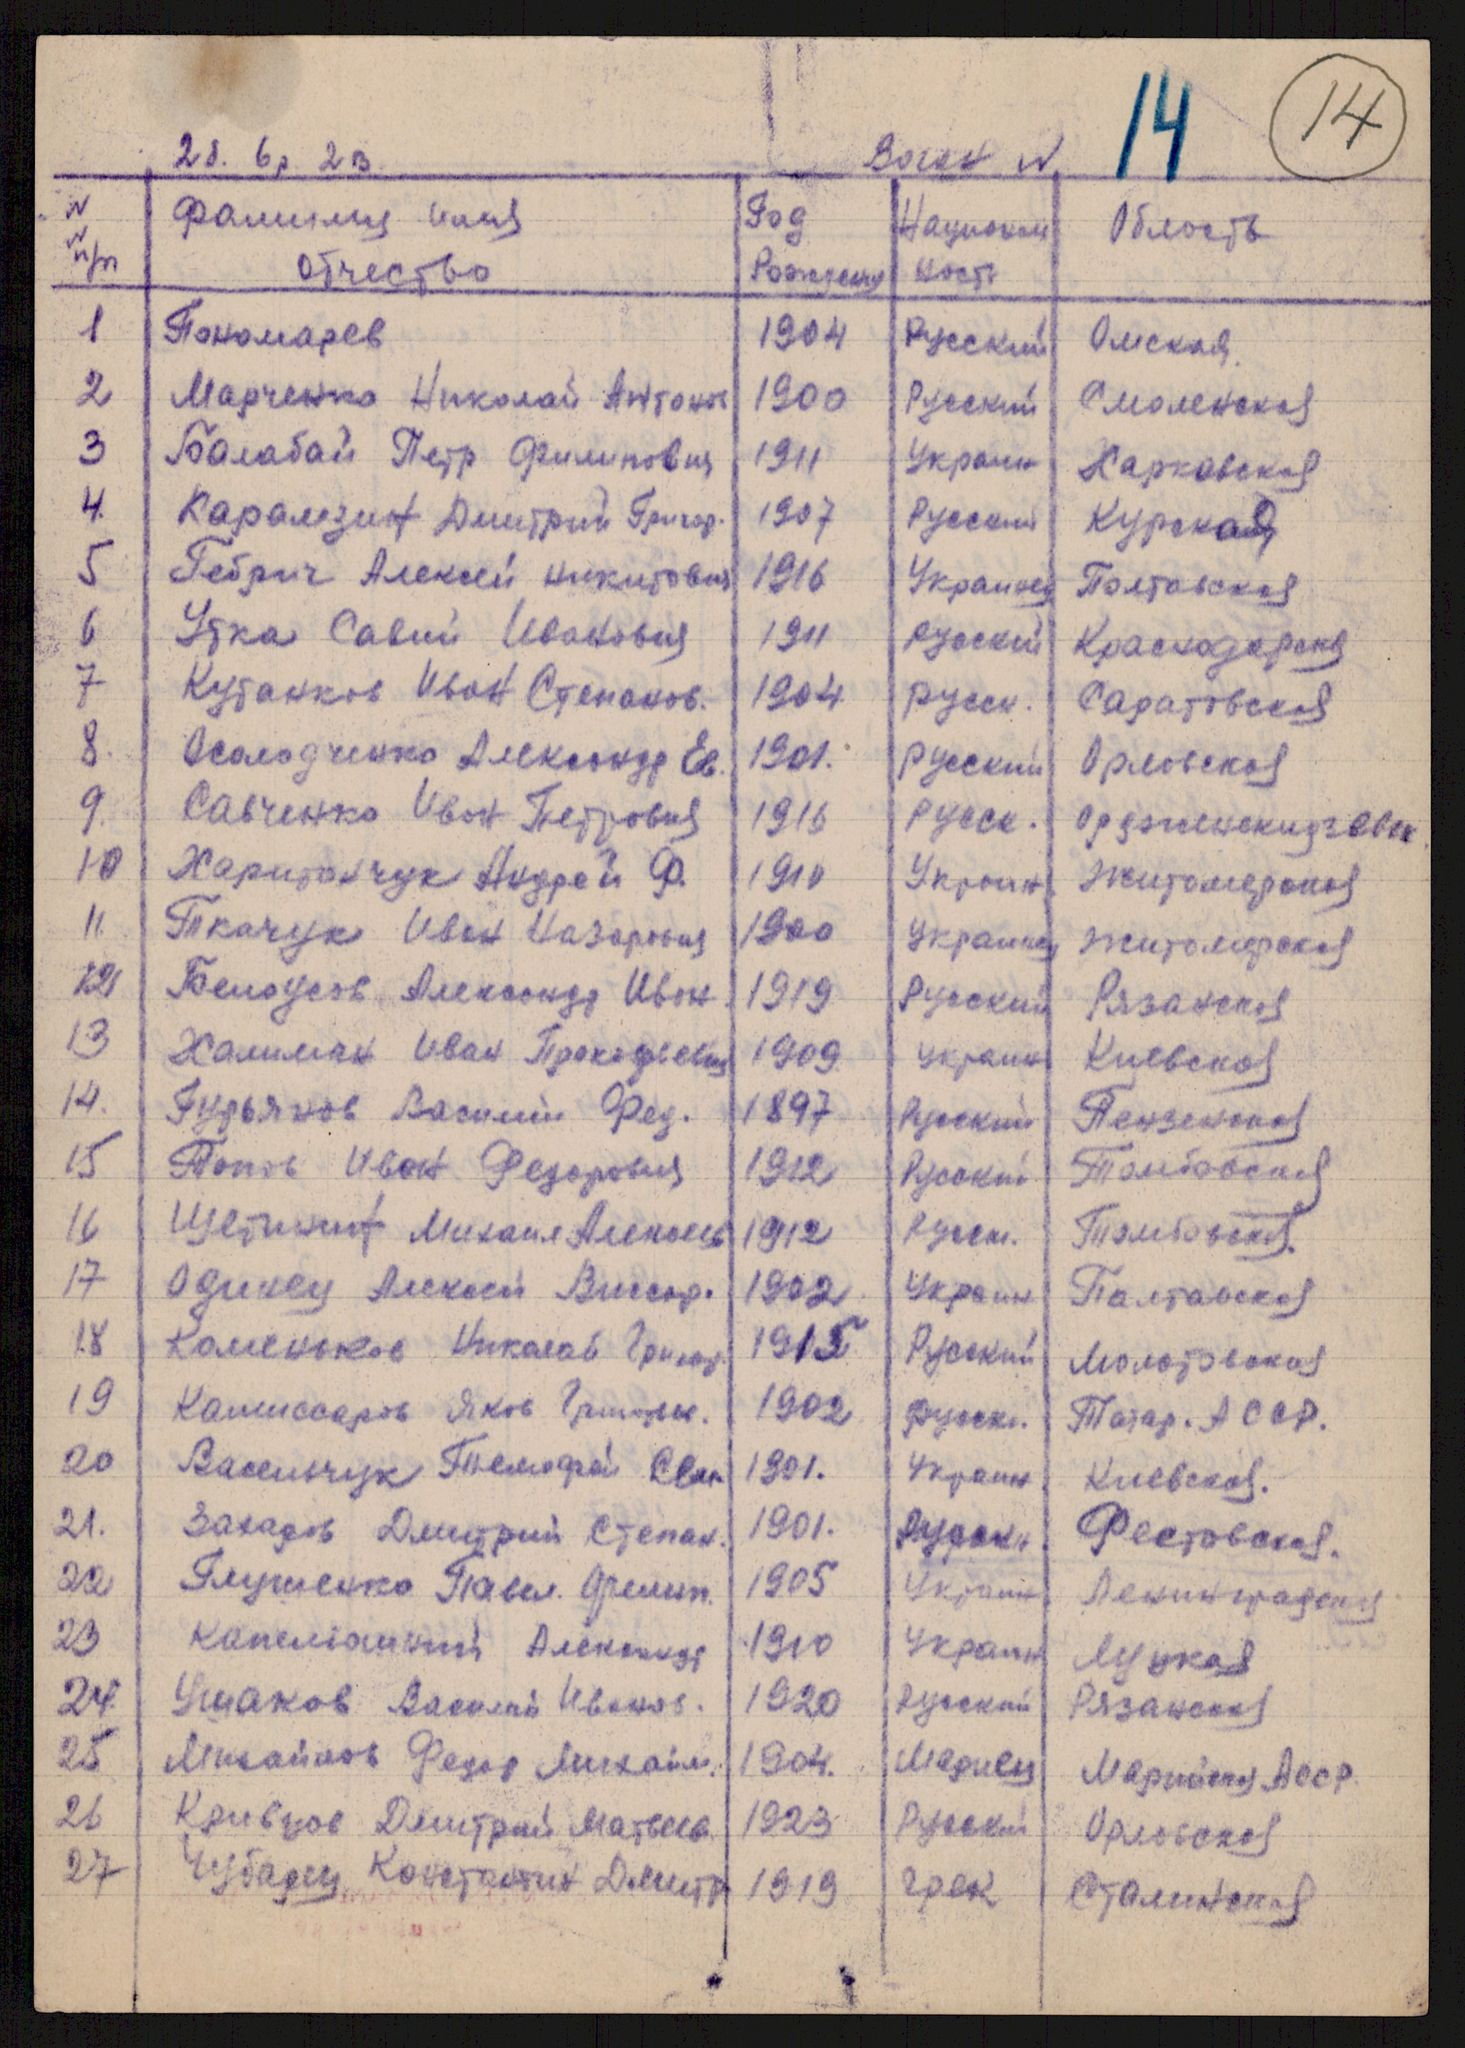 14 14
28. бр 2в. Вагон N
N N п/п Фамилия имя Год Национал Область
отчество Рождения ность
1 Пономарев 1904 Русский Омская.
2 Марченко Николай Антонов 1900 Русский Смоленская
3 Балабай Петр Филипович 1911 Украин Харковская
4. Карамзин Дмитрий Григор. 1907 Русский Курская
5 Гебрич Алексей никитович 1916 Украинец Полтавская
6 Утка Савий Иванович 1911 Русский Краснодарска
7 Кутанков Иван Степанов. 1904 Русск. Саратовская
8. Осолодченко Александр Ев. 1901. Русский Орловская
9. Савченко Иван Петрович 1916 Русск. Ордженикидзевск.
10 Харитончук Андрей Ф. 1910 Украин. Житомерская
11. Ткачук Иван Назарович 1900 Украинец Житомерская
12 Белоусов Александр Иван. 1919 Русский Рязанская
13 Халиман Иван Прокофьевич 1909 Украин Киевская
14. Гурьянов Василий Фед. 1897 Русский Пензенская
15 Попов Иван Федорович 1912 Русский Тамбовская
16 Щетинин Михаил Алексеев 1912 Русск. Тамбовская.
17 Одинец Алексей Виктор. 1902. Украин Палтавская
18 Каменьков Николай Григор. 1915 Русский Молотовская
19 Камиссаров Яков Григорьев. 1902 Русск. Татар. АССР.
20 Васельчук Темофей 1901. Украин. Киевская.
21. Захаров Дмитрий Степан. 1901. Русск. Ростовская.
22 Глущенко Павел. Филип. 1905 Украин Ленинградская
23 Александр 1910 Украин Луцкая
24. Ушаков Василий Иванов. 1920 Русский Рязанская
25 Михайлов Федор Михайл. 1904. Мариец Марийская АССР.
26 Кривцов Дмитрий Матвеев. 1923 Русский Орловская
27 Константин Дмитр 1919 Грек Сталинская